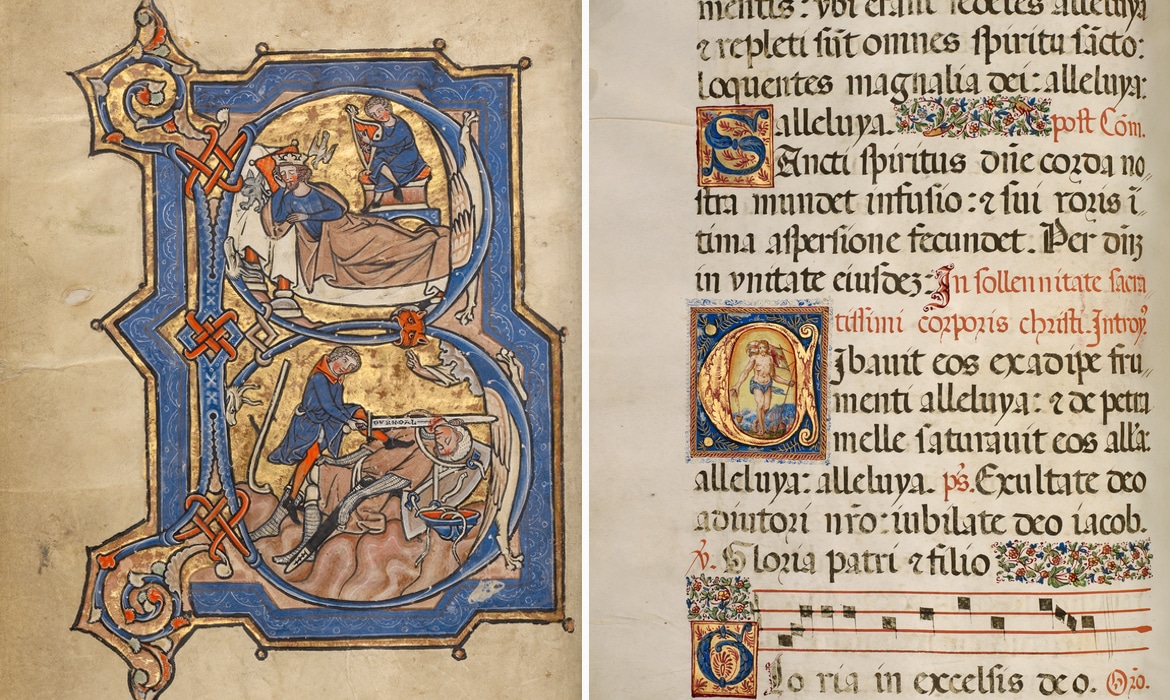 B
GVRNDAL
mentis: vbi erant sedentes alleluya
⁊ repleti sūt omnes spiritu sācto:
loquentes magnalia dei: alleluya:
alleluya. post Cōm.
Sancti spiritus dn̄e corda no„
stra mundet infusio: ⁊ sui roris ī„
tima aspersione fecundet. Per dn̄ʒ
in vnitate eiusdeʒ: In sollennitate sacra
tissimi corporis christi. Introyᵗ
Cibauit eos ex adipe fru„
menti alleluya: ⁊ de petra
melle saturauit eos all'a:
alleluya: alleluya. p̄s. Exultate deo
adiutori nr̄o: iubilate deo iacob.
℣. Gloria patri ⁊ filio
Glo ria in excelsis de o. Orō.